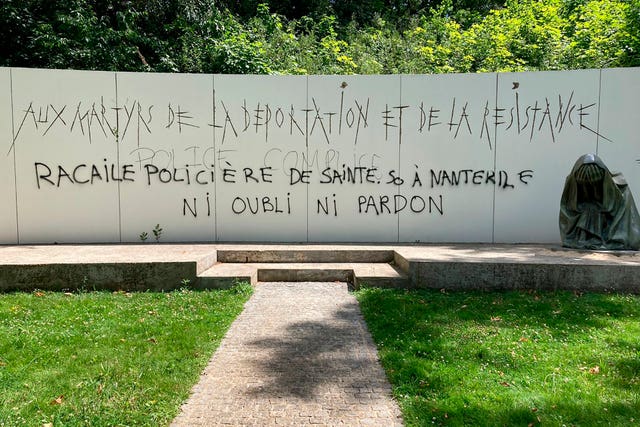 AUX MARTYRS DE LA DÉPORTATION ET DE LA RÉSISTANCE
POLICE COMPLICE
RACAILE POLICIÈRE DE SAINTE. SO À NANTERILE
NI OUBLI NI PARDON